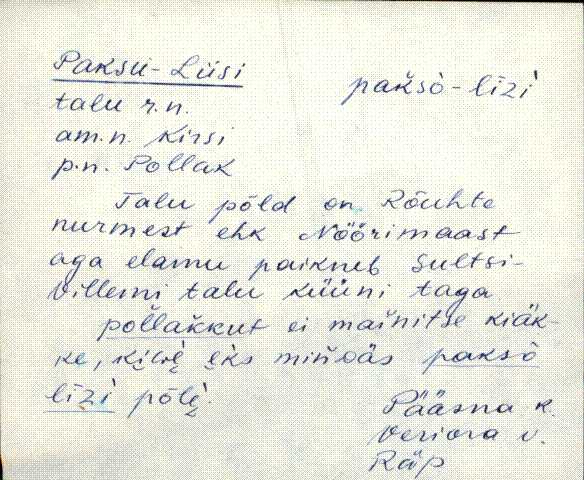 Paksu-Liisi
pakšò - līzì
talu r.n.
am.n. Kirsi
p.n. Pollak
Talu põld on Rõuhte
nurmest ehk Nöörimaast
aga elamu paikneb Sultsi-
Villemi talu küüni taga
pollakkut ei mainitse kiäk-
ke, eks pakšò
līzì põlè.
Pääsna k.
Veriora v.
Räp